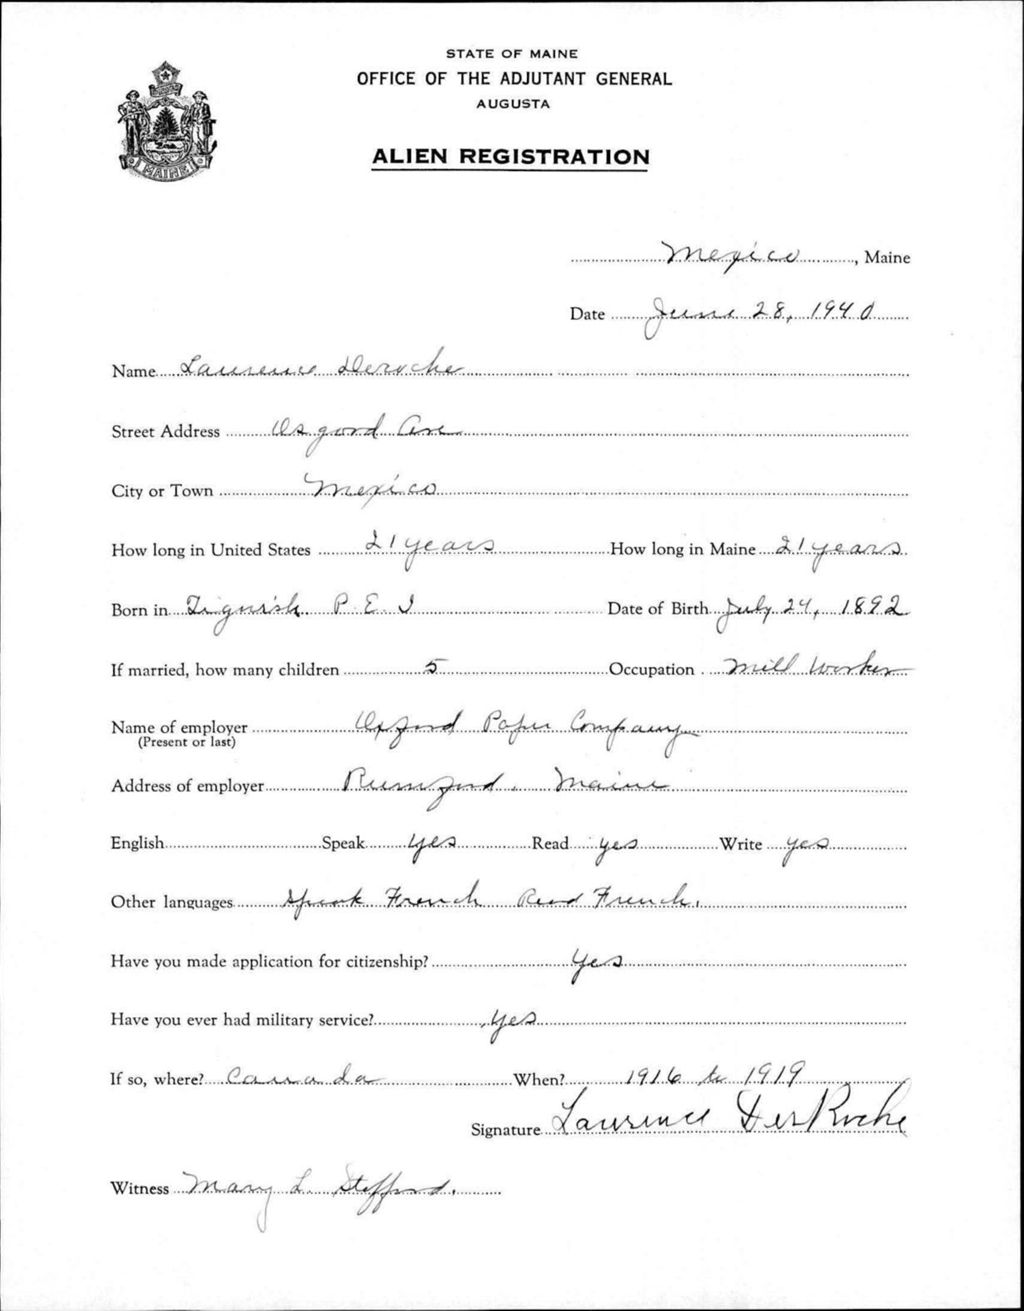 STATE OF MAINE
OFFICE OF THE ADJUTANT GENERAL
AUGUSTA
ALIEN REGISTRATION
MAINE
Mexico, Maine
Date June 28, 1940
Name Laurence Deroche
Street Address Osgood Ave
City or Town Mexico
How long in United States 21 years How long in Maine 21 years
Born in Tignish P. E. I Date of Birth July 24, 1892
If married, how many children 5 Occupation Mill Worker
Name of employer Oxford Paper Company
(Present or last)
Address of employer Rumford, Maine
English Speak yes Read yes Write yes
Other languages Speak French Read French.
Have you made application for citizenship? Yes
Have you ever had military service? Yes
If so, where? Canada When? 1916 to 1919
Signature Lawrence DesRoche
Witness Mary L. Stafford.